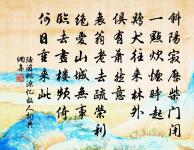 斜陽寂歷柴門閉
一點炊煙時起
雞犬往來林外
俱有蕭然意
衰翁老去疏榮利
絕愛山城無事
臨去畫樓頻倚
何日重來此
陸游桃源忆故人詞典
網